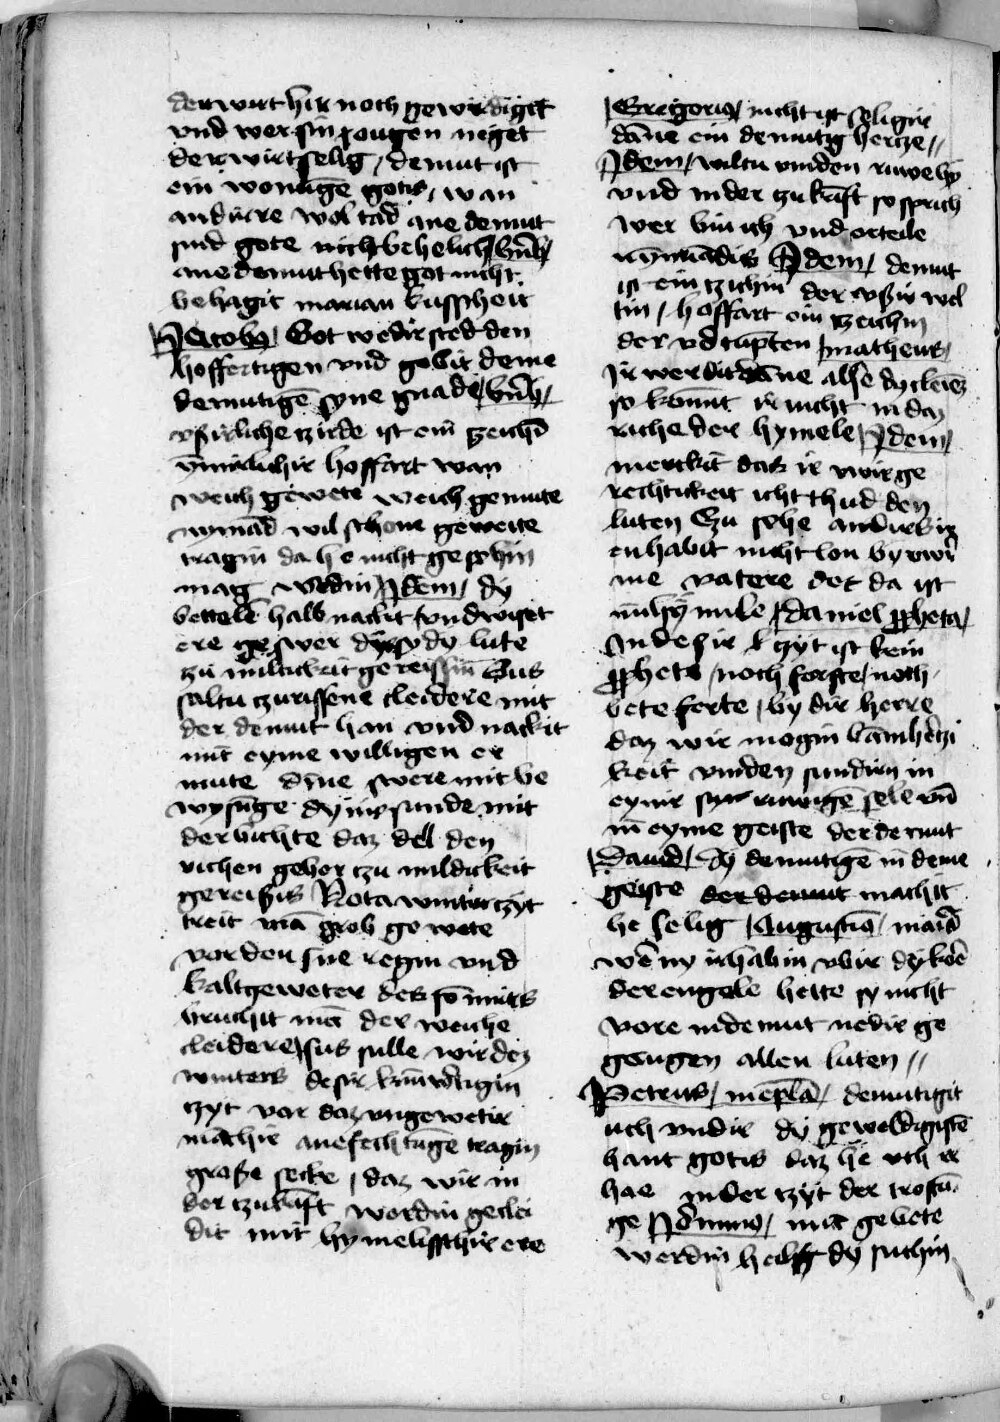 der wirt hir noch gewirdiget
vnd wer sin ougen neget
der wirt selig / demut ist
ein wonūge gotis / wan
andire wol tad ane demut
sind gote nicht behelich / bn̄h /
ane demut hette got nicht
behagit marian kusscheit
Jacob9 / Got wedir sted den
hoffertigen vnd gebit deme
demutigē syne gnade / bn̄h /
vsirliche tzirde ist ein tzeichī
ȳnirlichir hoffart wan
weich gewete weich gemute
nymād wil schone geweite
tragin da he nicht gesehin
mag werdin / Jdem / dy
bettelē halb nackit vnd wiset
ere geswer dy lute
zu mildickeit gereissin Sus
saltu zurissene cleidere mit
der demut han vnd nackit
mit eyme willigen er
mute dine swere mit be
wysūge dyner sunde mit
der bichte daz den
richen gehor tzu mildickeit
gereisis Nota wintir tzyt
treit mā grob gewete
vor den sne regin vnd
kalt geweter des somirs
bruchit mā der weiche
cleidere / sus sulle wir den
winters desir keginwertigin
tzyt vor daz vngewetir
māchir anefechtūge tragin
große secke / daz wir in
der tzukūft werdin geclei
dit mit hymelisschir ere
Gregorius / nicht ist seligir
dāne ein demutig hertze //
Jdem / wiltu vinden ruwe hy
vnd in der zukūft so sprich
wer bin ich vnd orteile
nymādis Jdem / demut
ist ein tzichin der vßir wel
tin / hoffart ein tzeichin
der vertūpten / matheus /
Jr werdit dāne alse dy cleinē
so komit ir nicht in daz
riche der hymele / Jdem /
merckit das ir uwir ge
rechtickeit icht thud den
luten Czu sehe andirs ir
enhabit nicht lon by uwir
me vatere der da ist
in hymile / daniel ꝓpheta /
Jn desir tzyt ist kein
ꝓphete / noch forste / noch
leteferte / by dir herre
daz wir mogin barmhertzi
keit vinden sundirn in
eynir ruwigē sele vn̄
in eyme geiste der demut
Dauid / dy demutigē in deme
geiste der demut machit
he selig / Augustin9 / maria
were ny irhabin vbir dy kore
der engele hette sy nicht
vore in demut nedir ge
geugen allen luten //
Petrus / in epl̄a / demutigit
uch vndir dy geweldigiste
hant gotis daz he uch ir
hoe in der tzyt der trostū
ge Jeronim9 / mit gebete
werdin heilsz dy suchin